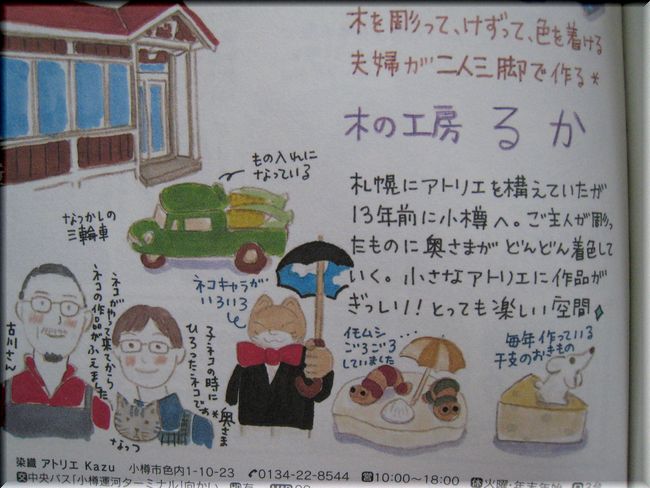 木を彫って、けずって、色を着ける
夫婦が二人三脚で作る*
木の工房 るか
札幌にアトリエを構えていたが
13年前に小樽へ。ご主人が彫っ
たものに奥さまがどんどん着色して
いく。小さなアトリエに作品が
ぎっしり!!とっても楽しい空間
もの入れに
なっている
なつかしの
三輪車
ネコキャラが
いろいろ
古川さん
ネコがやって来てから
ネコの作品がふえました
子ネコの時に
ひろったネコです*
奥さま
なっつ
イモムシ…
ごろごろ
していました
毎年作っている
干支のおきもの
染織 アトリエ Kazu 小樽市色内1-10-23 0134-22-8544 営10:00~18:00 休火曜・年末年始
交中央バス「小樽運河ターミナル」向かい